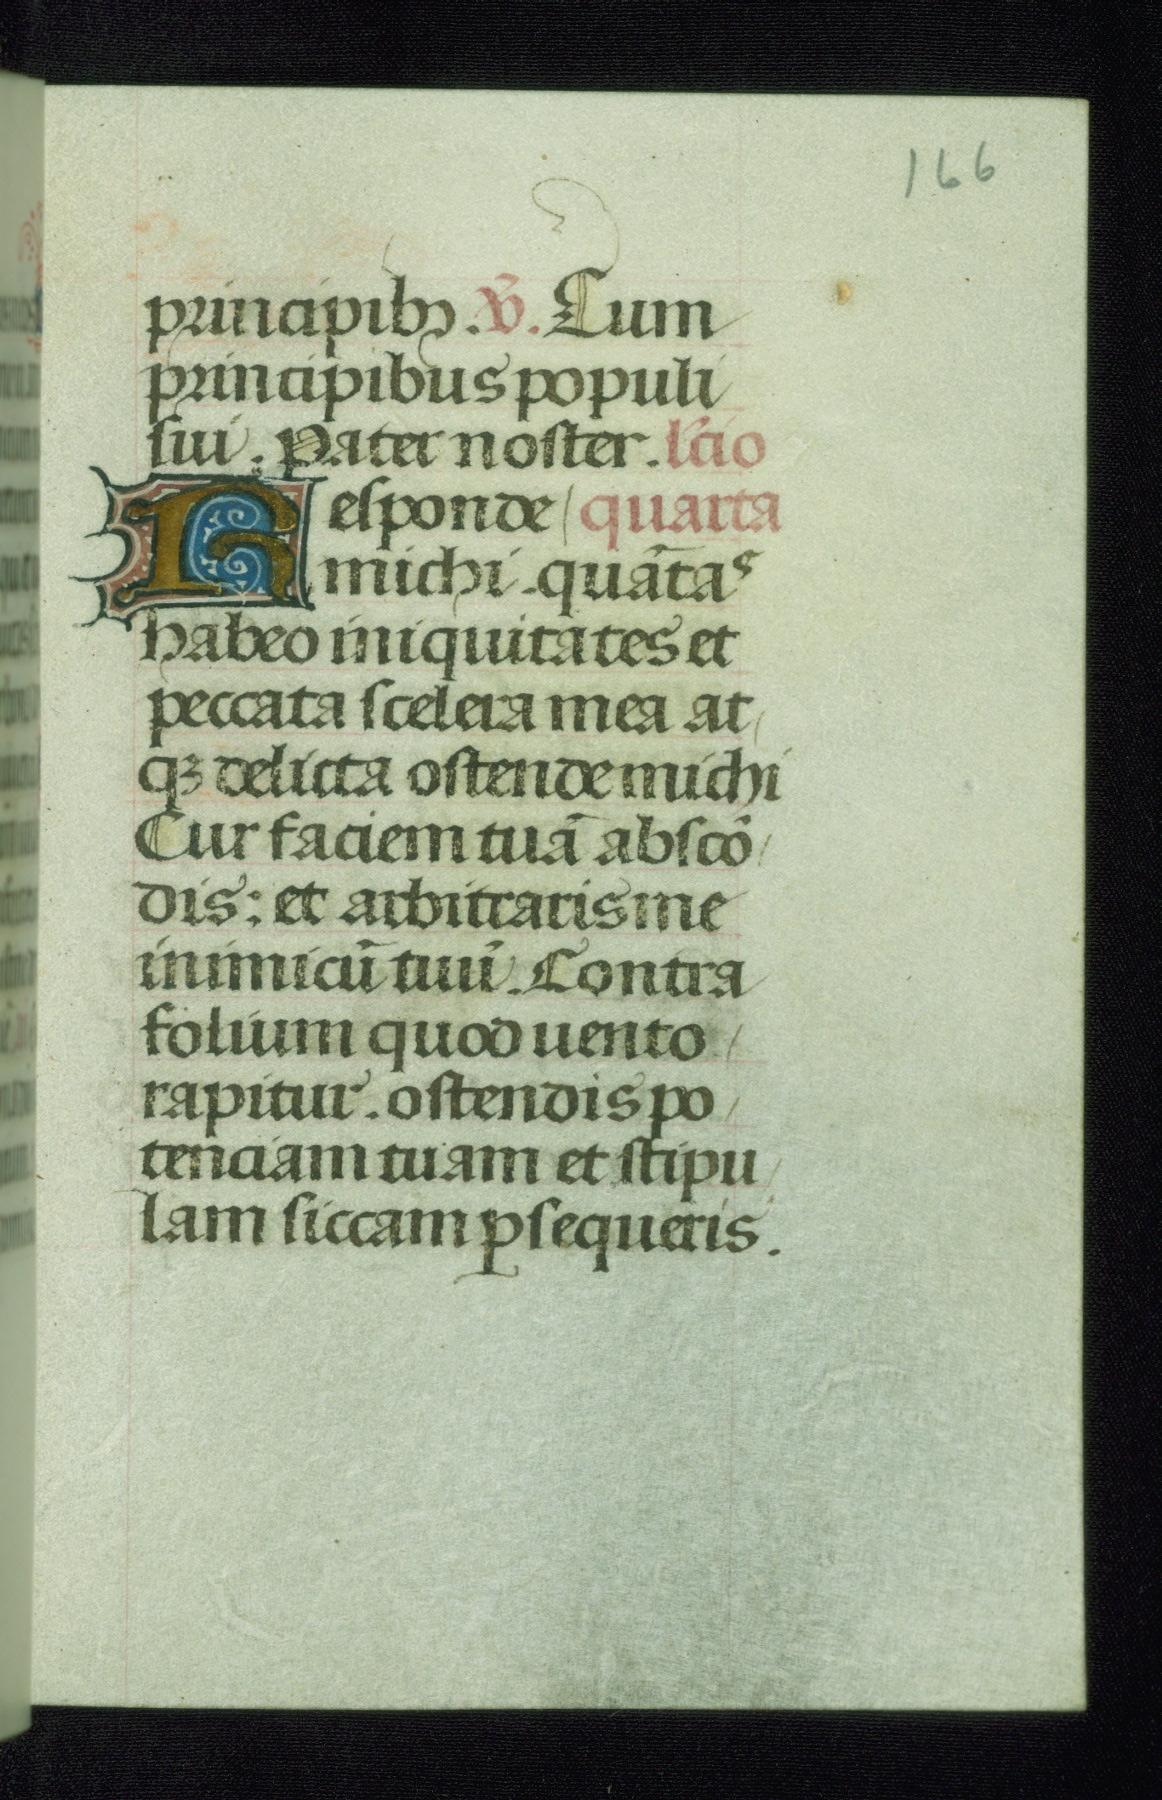 166
principibꝫ. v̄. Cum
principibus populi
sui. Pater noster. lc̄io
Responde quarta
michi. quātas
habeo iniquitates et
peccata scelera mea at
qꝫ delicta ostende michi
Cur faciem tuā abscō
dis: et arbitraris me
inimicū tuū. Contra
folium quod uento
rapitur. ostendis po
tenciam tuam et stipu
lam siccam ꝑsequeris.